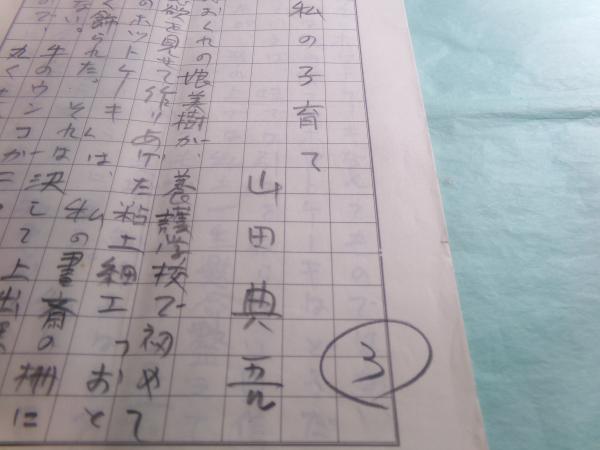 私の子育て
山田典
3
おくれの娘美樹が、養護学校で初めて
欲を見せて作りあげた粘土細工
のホットケーキは、私の書斎の棚に
く飾られた。それは、決して上出
ない。牛のウンコが
ので、丸く